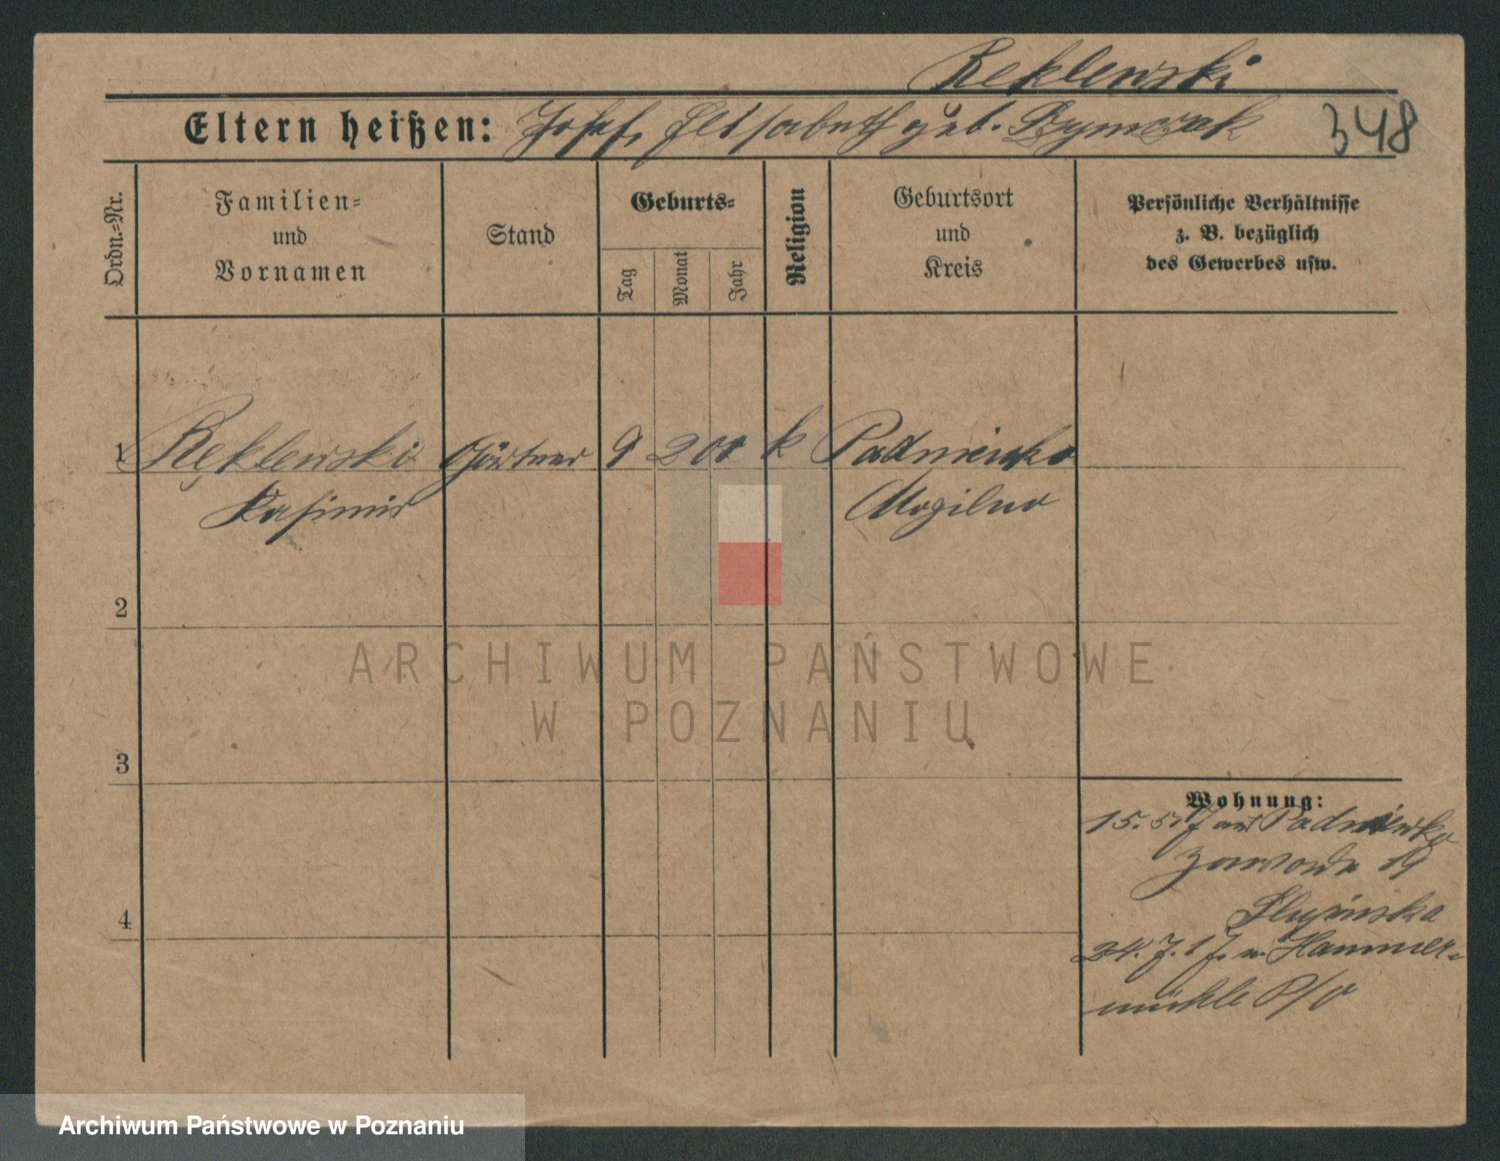 Reklewski
Eltern heißen: Josef, Elisabeth geb. Szymczak
348
Ordn.-Nr.
Familien-
und
Vornamen
Stand
Geburts-
Tag
Monat
Jahr
Religion
Geburtsort
und
Kreis
Persönliche Verhältnisse
z. B. bezüglich
des Gewerbes usw.
1 Ręklewski Gärtner 9 2 00 k Padniewko
Kasimir Mogilno
2
ARCHIWUM PAŃSTWOWE
W POZNANIU
3
Wohnung:
15. 5. 17 aus Padniewko
Zawade 19
24. 7. 17 n. Hammer-
mühle P/O
4
Archiwum Państwowe w Poznaniu